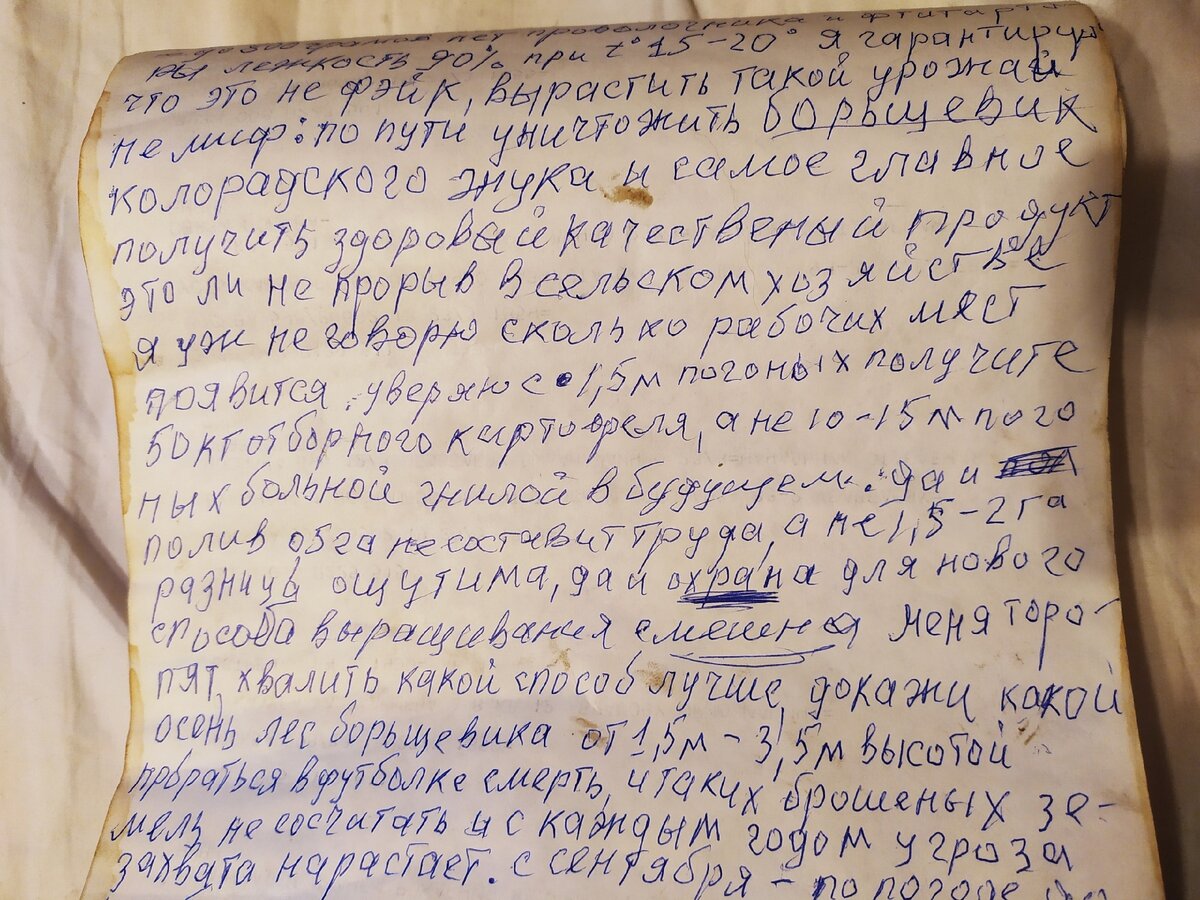 нет проволочника и фитофто
лёжкость 90% при t° 15-20° я гарантирую
что это не фэйк, вырастить такой урожай
не миф: по пути уничтожить борьщевик
колорадского жука и самое главное
получить здоровый качественый продукт
это ли не прорыв в сельском хозяйстве
я уж не говорю сколько рабочих мест
появится. уверяю с 1,5м погоных получите
50кг отборного картофеля, а не 10-15м пого
ных больной гнилой в будущем. да и
полив 0,5га не составит труда, а не 1,5-2га
разница ощутима, да и охрана для нового
способа выращивания смешная меня торо-
пят, хвалить какой способ лучше, докажи какой
осень лес борьщевика от 1,5м - 3,5м высотой
пробраться в футболке смерть, и таких брошеных зе-
мель не сосчитать и с каждым годом угроза
захвата нарастает. с сентября - по погоде